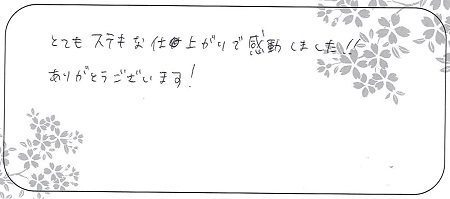 とても ステキな仕上がりで感動しました!!
ありがとうございます!